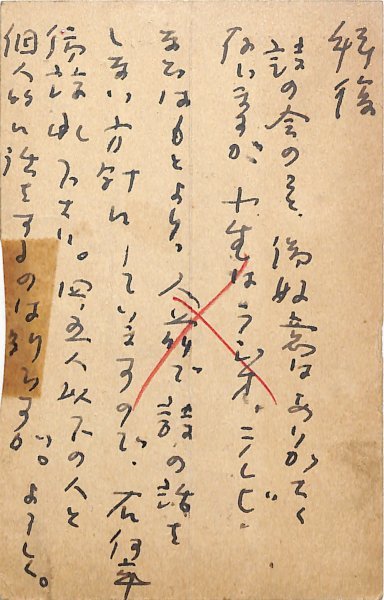 拝復
詩の会のこと、御好意はありがたく
ないますが、小生はラジオ、テレビ、
まではもとより、人前で詩の話を
しない方針にしていますので、右何卒
御諒承下さい。四五人以下の人と
個人的に話をするのは
いゝ。よろしく。